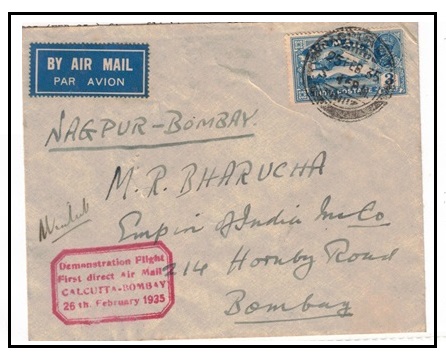 BY AIR MAIL
PAR AVION
NAGPUR-BOMBAY.
M. R. BHARUCHA
Empire of India Ins Co
214 Hornby Road
Bombay
Demonstration Flight
First direct Air Mail
CALCUTTA-BOMBAY
26th. February 1935